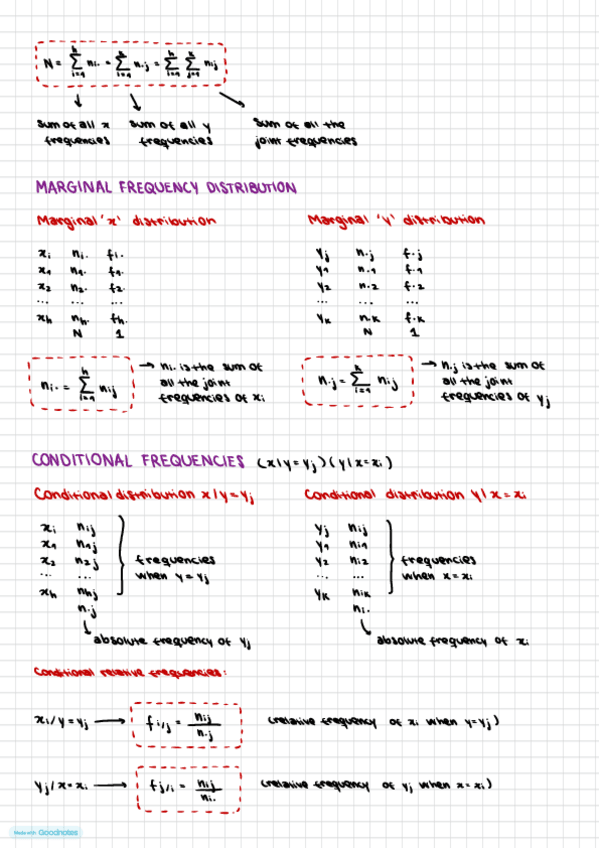 N = h∑i=1 ni. = k∑i=1 n.j = h∑i=1 k∑j=1 nij
sum of all x frequencies
sum of all y frequencies
sum of all the joint frequencies
MARGINAL FREQUENCY DISTRIBUTION
Marginal 'x' distribution
xi ni. fi.
x1 n1. f1.
x2 n2. f2.
... ... ...
xh nh. fh.
N 1
ni. = h∑i=1 nij
→ ni. is the sum of
all the joint
frequencies of xi
Marginal 'y' distribution
yj n.j f.j
y1 n.1 f.1
y2 n.2 f.2
... ... ...
yk n.k f.k
N 1
n.j = h∑i=1 nij
→ n.j is the sum of
all the joint
frequencies of yj
CONDITIONAL FREQUENCIES (x/y=yj)(y/x=xi)
Conditional distribution x/y=yj
xi nij
x1 n1j
x2 n2j
... ...
xh nhj
n.j
frequencies
when y=yj
absolute frequency of yj
Conditional distribution y/x=xi
yj nij
y1 ni1
y2 ni2
... ...
yk nik
ni.
frequencies
when x=xi
absolute frequency of xi
Conditional relative frequencies:
xi/y=yj → fi/j = nij/n.j (relative frequency of xi when y=yj)
yj/x=xi → fj/i = nij/ni. (relative frequency of yj when x=xi)
Made with Goodnotes